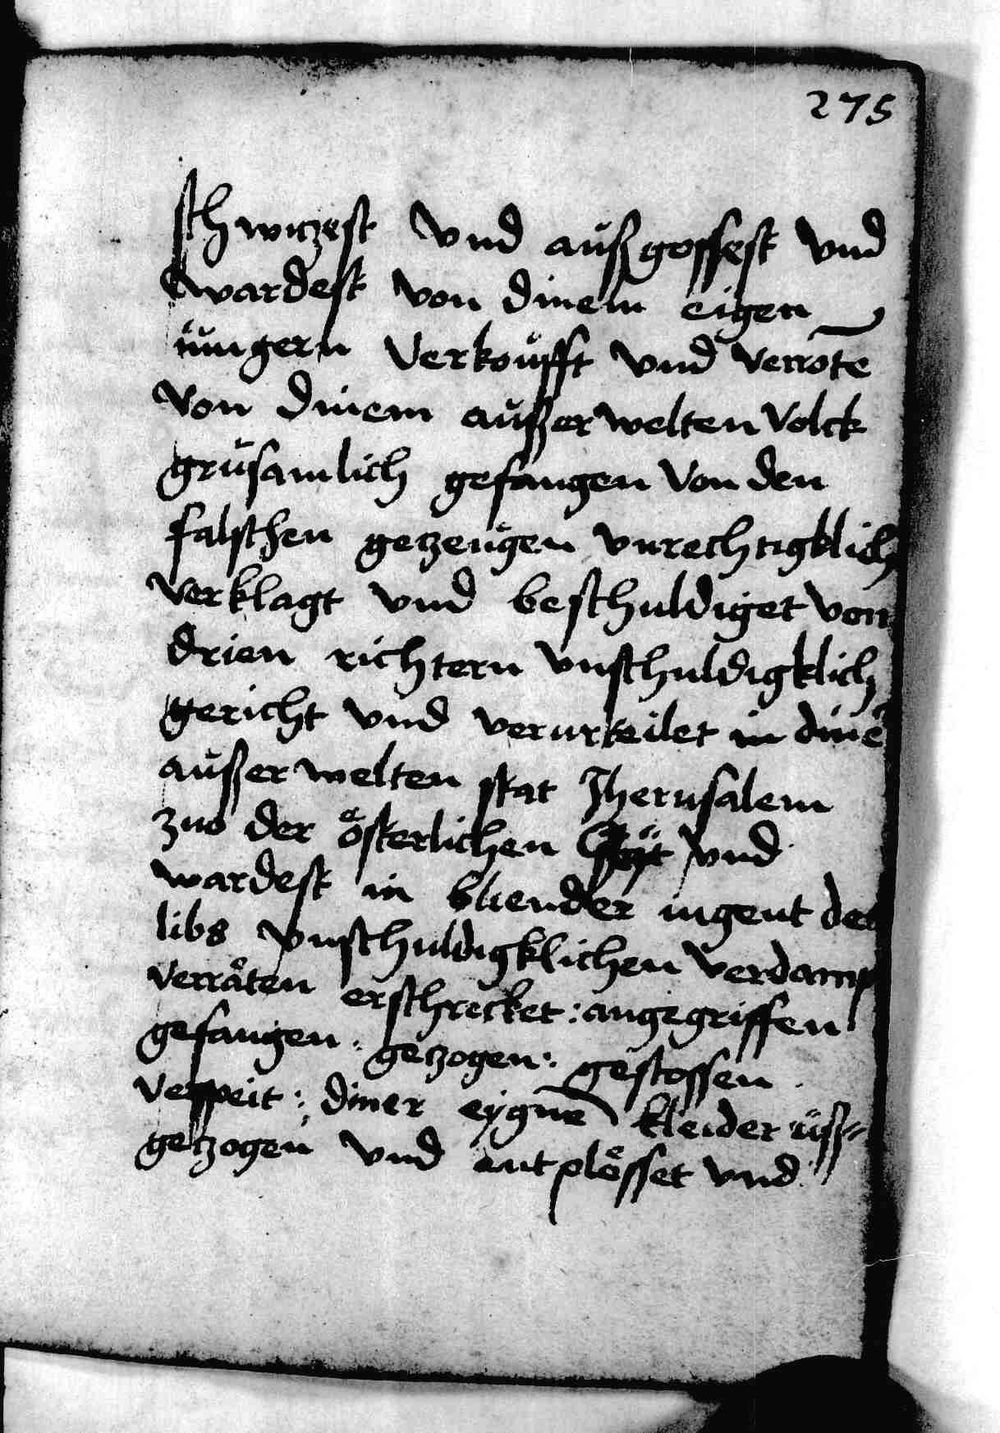 275
schwitzest vnd außgossest vnd
wardest von dinem eigen
iüngern verkoüfft vnd verrote
von dinem außerwelten volck
grüsamlich gefangen von den
falschen getzeügen vnrechtigklich
verklagt vnd beschuldiget von
drien richtern vnschuldigklich
gericht vnd verurteilet in dinē
außerwelten stat Jherusalem
zuo der österlichen vnd
wardest in bliender iugent des
libs vnschuldigklichen verdamp
verräten erschrecket : angegriffen
gefangen : getzogen : gestossen
verspeit : diner eygnē kleider üß-
getzogen vnd entplösset vnd